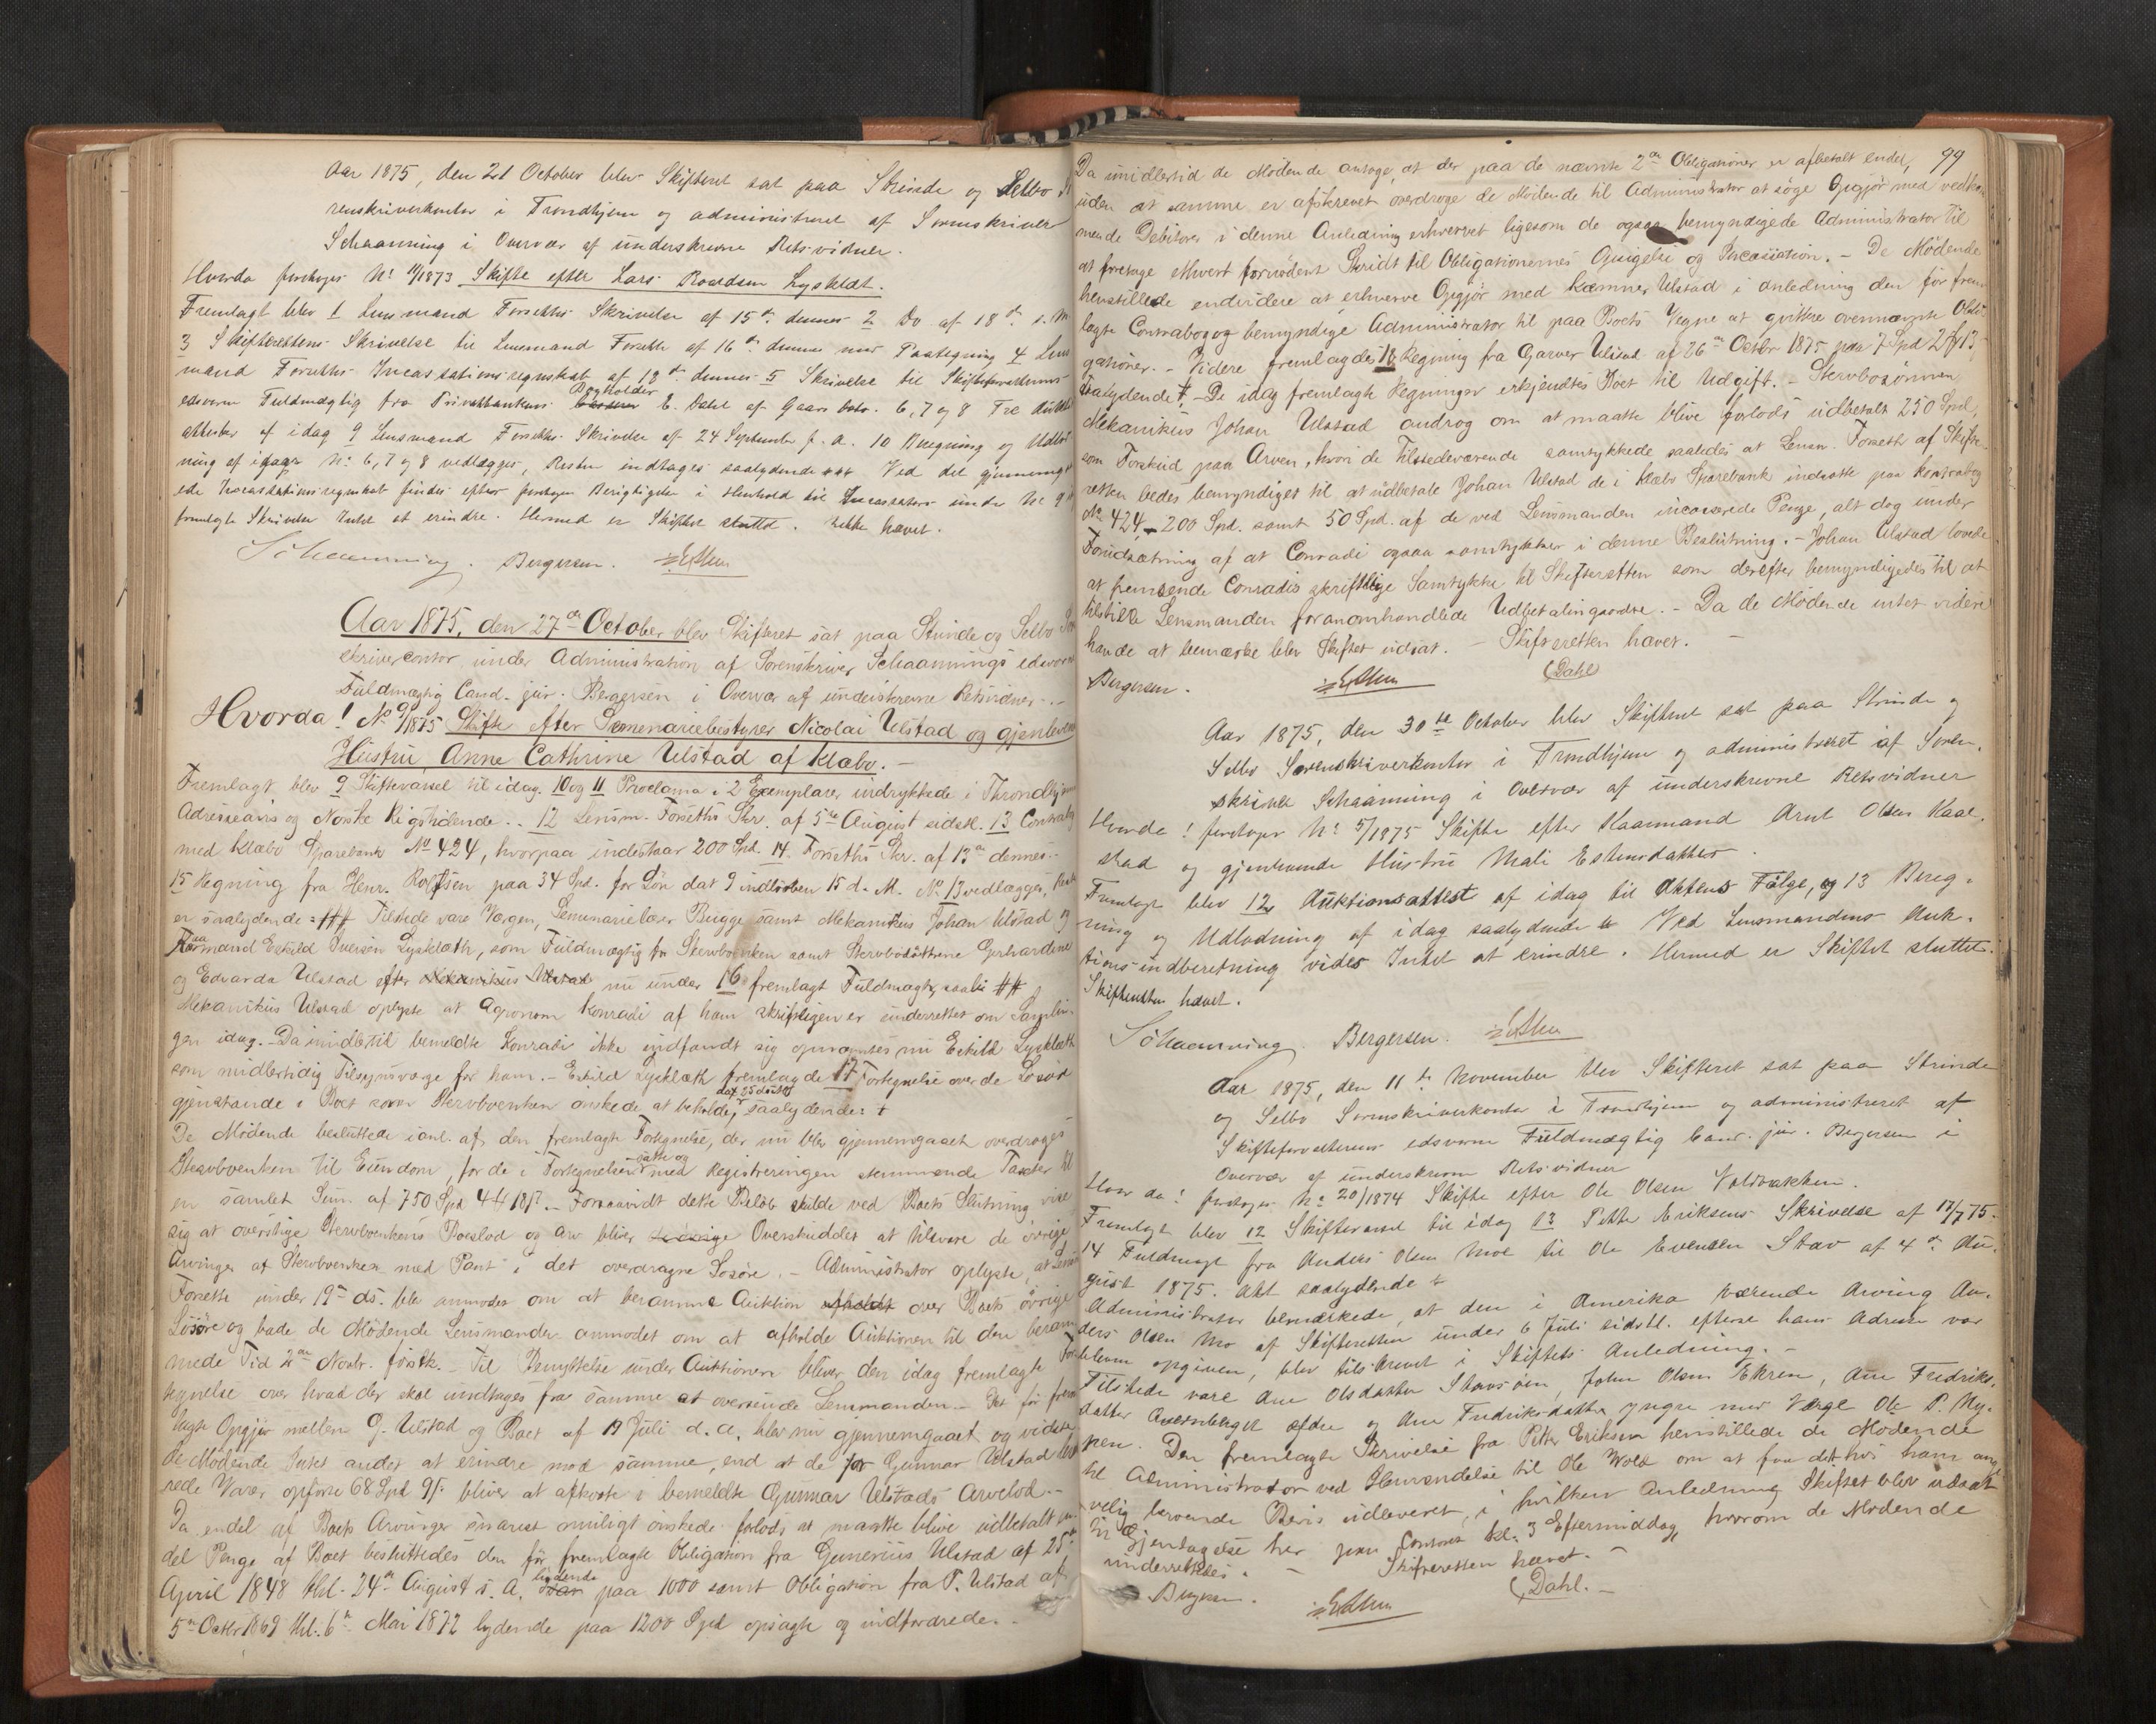 Aar 1875, den 21 October blev Skifteret sat paa Strinde og Selbo
renskriverkontor i Trondhjem og administreret af Sorenskriver
Schaanning i Overvær af underskrevne Retsvidner.
Hvorda foretoges No 11/1873 Skifte efter Lars Roaldsen Lysklæt.
Fremlagt blev 1 Lensmand Forseths Skrivelse af 15de dennes 2 Do af 18de s. M
3 Skifterettens Skrivelse til Lensmand Forseth af 16de dennes med Paategning 4 Lens
mand Forseths Incassationsregnskab af 18de dennes 5 Skrivelse til Skifteforvalterens
edsvorne Fuldmægtig fra Privatbankens Bogholder E. Dahl af Gaars Dato. 6, 7 og 8 Tre
attester af idag 9 Lensmand Forseths Skrivelse af 24 September f. a. 10 Beregning og Udlod
ning af idag No 6, 7 og 8 vedlægges, Resten indtages saalydende Ved det gjennemg
ede Incassationsregnskab findes efter foretagen Berigtigelse i Henhold til Incassators under No 9
fremlagte Skrivelse Intet at erindre. Hermed er Skiftet sluttet. Retten hævet.
Schaanning. Bergersen.
Aar 1875, den 27de October blev Skifteret sat paa Strinde og Selbo
skrivercontor under Administration af Sorenskriver Schaannings edsvorne
Fuldmægtig Cand. jur. Bergersen i Overvær af underskrevne Retsvidner.
Hvorda! No 9/1875 Skifte efter Semenariebestyrer Nicolai Ulstad og gjenlevende
Hustru, Anne Cathrine Ulstad af Klæbo.
Fremlagt blev 9 Skiftevarsel til idag. 10 og 11 Proclama i 2 Exemplarer indrykkede i Throndhjems
Adresseavis og Norske Rigstidende. 12 Lensm. Forseths Skr. af 5te August sidstl. 13 Contrabog
med Klæbo Sparebank No 424, hvorpaa indestaar 200 Spd. 14. Forseths Skr. af 13de dennes.
15 Regning fra Henr. Rolfsen paa 34 Spd. for Løn dat 9 indløben 15 d. M. No 13 vedlægges, Rest
er saalydende: ## Tilstede vare Værgen, Semenarielærer Bugge samt Mekanikus Johan Ulstad og
Eskild Iversen Lysklæth, som Fuldmægtig for Stervboenken samt Stervbodøttrene Gerhardine
og Edvarda Ulstad efter Mekanikus Ulstad nu under 16 fremlagt Fuldmagt, saal: ##
Mekanikus Ulstad oplyste at Agronom Konradi af ham skriftligen er underrettet om Samlin-
gen idag. Da imidlertid bemeldte Konradi ikke indfandt sig opnævntes nu Eskild Lysklæth
som midlertidig Tilsynsværge for ham. Eskild Lysklæth fremlagde 17 Fortegnelse over de Løsøre
gjenstande i Boet som Stervboenken ønskede at beholde, dat 25 ds saalydende: +
De Mødende besluttede i anl. af den fremlagte Fortegnelse, der nu blev gjennemgaaet overdraget
Stervboenken til Eiendom for de i Fortegnelsen satte og med Registreringen stemmende Taxter til
en samlet Sum af 750 Spd 4 # 18 s. Forsaavidt dette Beløb skulde ved Boets Slutning vise
sig at overstige Stervboenkens Boeslod og Arv bliver Overskuddet at tilsvare de øvrige
Arvinger af Stervboenken med Pant i det overdragne Løsøre. Administrator oplyste, at Lensm
Forseth under 19de ds. blev anmodet om at beramme Auktion afholdt over Boets øvrige
Løsøre og bade de Mødende Lensmanden anmodet om at afholde Auktionen til den beram
mede Tid 2den Novbr. førstk. Til Benyttelse under Auktionen bliver den idag fremlagte For
tegnelse over hvad der skal undtages fra samme at oversende Lensmanden. Det før frem
lagte Opgjør mellem G. Ulstad og Boet af 19 Juli d. a. blev nu gjennemgaaet og vidste
de Mødende Intet andet at erindre mod samme, end at de for Gunnar Ulstad
rede Varer opførte 68 Spd 9 s. bliver at afkorte i bemeldte Gunnar Ulstads Arvelod.
Da endel af Boets Arvinger snarest muligt ønskede forlods at maatte blive udbetalt en
del Penge af Boet besluttedes den før fremlagte Obligation fra Gunerius Ulstad af 25de
April 1848 thl. 24de August s. A. lydende paa 1000 samt Obligation fra P. Ulstad af
5te Octbr 1869 thl. 6te Mai 1872 lydende paa 1200 Spd opsagte og indfordrede.
99
Da imidlertid de Mødende antoge, at der paa de nævnte 2de Obligationer er afbetalt endel,
uden at samme er afskrevet overdroge de Mødende til Administrator at søge Opgjør med vedkom
mende Debitorer i denne Anledning erhvervet ligesom de ogsaa bemyndigede Administrator til
at foretage ethvert fornødent Skridt til Obligationernes Opsigelse og Incassation. De Mødende
henstillede endvidere at erhverve Opgjør med Kæmner Ulstad i anledning den før frem
lagte Contrabog og bemyndige Administrator til paa Boets Vegne at qvittere ovennævnte Obli
gationer. Videre fremlagdes 18 Regning fra Garver Ulstad af 26de Octbr 1875 paa 7 Spd 2 # 13
saalydende +. De idag fremlagte Regninger erkjendtes Boet til Udgift. Stervbosønnen
Mekanikus Johan Ulstad androg om at maatte blive forlods udbetalt 250 Spd,
som Forskud paa Arven, hvori de Tilstedeværende samtykkede saaledes at Lensm. Forseth af Skifte
retten bedes bemyndiget til at udbetale Johan Ulstad de i Klæbo Sparebank indsatte paa Contrabog
No 424 - 200 Spd. samt 50 Spd. af de ved Lensmanden incasserede Penge, alt dog under
Forudsætning af at Conradi ogsaa samtykker i denne Beslutning. Johan Ulstad lovede
at fremsende Conradis skriftlige Samtykke til Skifteretten som derefter bemyndigedes til at
tilstille Lensmanden foranomhandlede Udbetalingsordre. Da de Mødende intet videre
havde at bemærke blev Skiftet udsat. Skifteretten hævet.
Bergersen. Dahl
Aar 1875, den 30te October blev Skifteret sat paa Strinde og
Selbo Sorenskriverkontor i Trondhjem og administreret af Soren-
skriver Schaanning i Overvær af underskrevne Retsvidner
Hvorda! foretoges No 5/1875 Skifte efter Kaarmand Arnt Olsen Kaal-
stad og gjenlevende Hustru Mali Estensdatter.
Fremlagt blev 12 Auktionsattest af idag til Aktens Følge, og 13 Bereg-
ning og Udlodning af idag saalydende Ved Lensmandens Auk-
tions-indberetning vides Intet at erindre. Hermed er Skiftet sluttet.
Skifteretten hævet.
Schaanning Bergersen.
Aar 1875, den 11te November blev Skifteret sat paa Strinde
og Selbo Sorenskriverkontor i Trondhjem og administreret af
Skifteforvalterens edsvorne Fuldmægtig Cand. jur. Bergersen i
Overvær af underskrevne Retsvidner
Hvor da! foretoges No 20/1874 Skifte efter Ole Olsen Voldbakken.
Fremlagt blev 12 Skiftevarsel til idag 13 Petter Eriksens Skrivelse af 17/7 75.
14 Fuldmagt fra Anders Olsen Moe til Ole Evensen Stav af 4de Au-
gust 1875. Alt saalydende +
Administrator bemærkede, at den i Amerika værende Arving An-
ders Olsen Mo af Skifteretten under 6 Juli sidstl. efterat hans Adresse var
bleven opgiven, blev tilskrevet i Skiftets Anledning.
Tilstede vare Ane Olsdatter Stavsøien, John Olsen Ekren, Ane Fredriks-
datter ældre og Ane Fredriksdatter yngre med Værge Ole P. My-
ren. Den fremlagte Skrivelse fra Petter Eriksen henstillede de Mødende
til Administrator ved Henvendelse til Ole Wold om at faa det hos ham ang
velig beroende Bevis udleveret, i hvilken Anledning Skiftet blev udsat
til Gjentagelse her paa Contoret kl. 3 Eftermiddag, hvorom de Mødende
underrettedes. Skifteretten hævet.
Bergersen. Dahl.